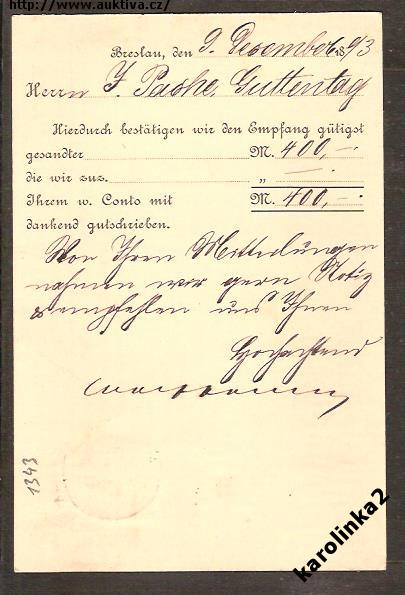 http://www.auktiva.cz/
Breslau, den 9. Dezember 1893
Herrn J. Paske, Guttentag
Hierdurch bestätigen wir den Empfang gütigst
gesandter M. 400,-
die wir zuz. „
Ihrem w. Conto mit M. 400,-
dankend gutschrieben.
Von Ihren Mitteilungen
nahmen wir gern Notiz
& empfehlen uns Ihnen
Hochachtend
1343
karolinka2